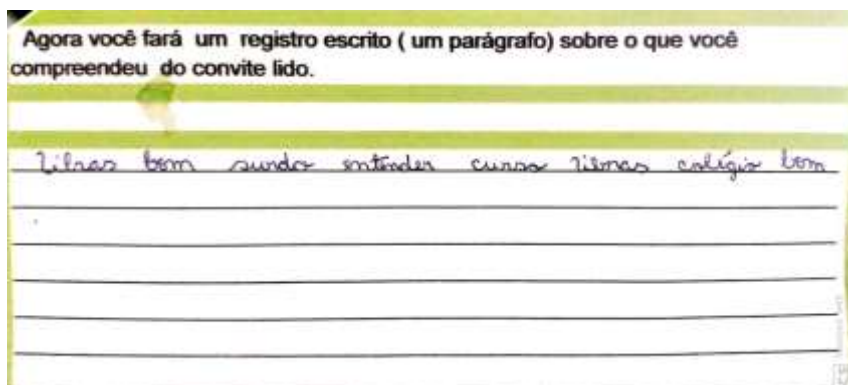 Agora você fará um registro escrito ( um parágrafo) sobre o que você
compreendeu do convite lido.
Libras bom surdo entender curso libras colégio bom